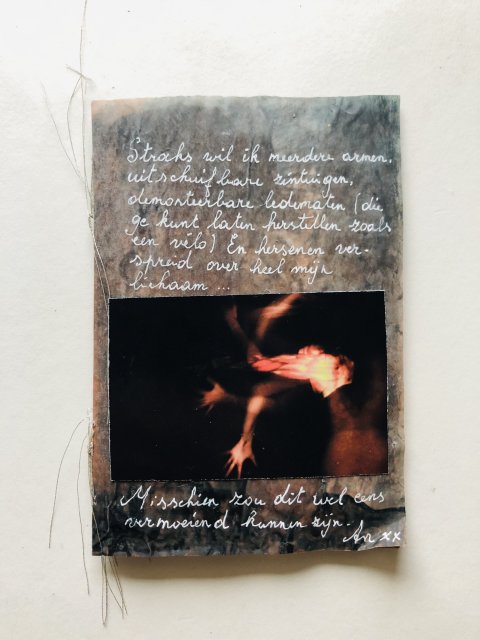 Straks wil ik meerdere armen,
uitschuifbare zintuigen,
demonteerbare ledematen (die
ge kunt laten herstellen zoals
een vélo) En hersenen ver-
spreid over heel mijn
lichaam ...
Misschien zou dit wel eens
vermoeiend kunnen zijn.
An xx